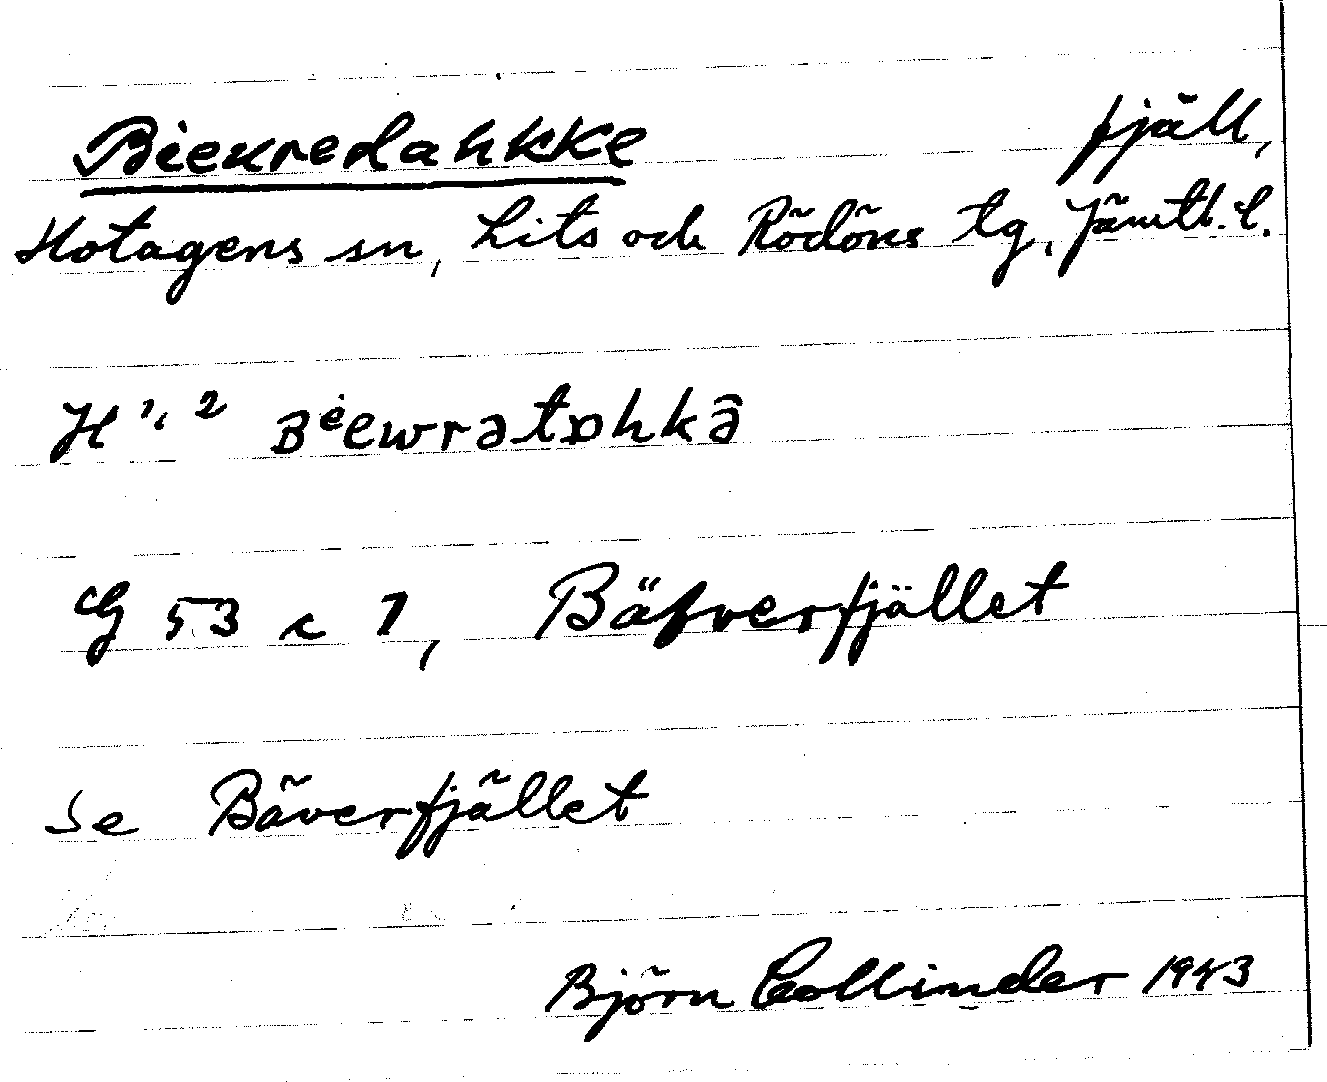 Bieuredahkke fjäll,
Hotagens sn, Lits och Rödöns tg, Jämtl. l.
H 1, 2 Bėewrətɒhkə̂
G 53 c 7, Bäfverfjället
Se Bäverfjället
Björn Collinder 1943